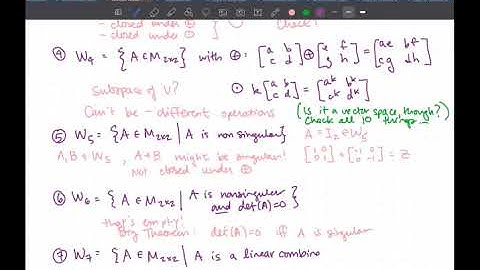 - closed under ⊕
- closed under ⊙
Check!
④ W₄ = { A ∈ M₂ₓ₂ } with ⊕: [a b; c d] ⊕ [e f; g h] = [ae bf; cg dh]
Subspace of V?
⊙ k[a b; c d] = [aᵏ bᵏ; cᵏ dᵏ]
Can't be - different operations
(Is it a vector space, though? Check all 10 things...)
⑤ W₅ = { A ∈ M₂ₓ₂ | A is nonsingular }
A = I₂ ∈ W₅
A, B ∈ W₅, A+B might be singular!
Not closed under ⊕
[1 0; 0 1] + [-1 0; 0 -1] = Z
⑥ W₆ = { A ∈ M₂ₓ₂ | A is nonsingular and det(A)=0 }
that's empty!
Big Theorem: det(A)=0 iff A is singular
⑦ W₇ = { A ∈ M₂ₓ₂ | A is a linear combino